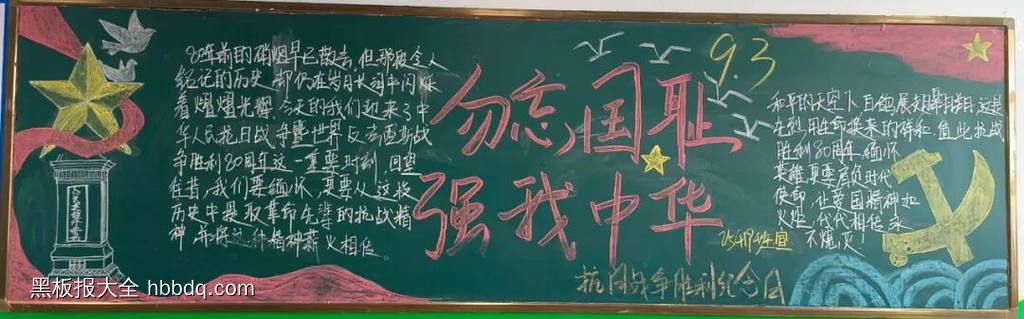 80年前的硝烟早已散去,但那段令人
铭记的历史,却仍在岁月长河中闪烁
着熠熠光辉。今天的我们迎来了中
华人民抗日战争暨世界反法西斯战
争胜利80周年这一重要时刻,回望
往昔,我们要缅怀,更要从这段
历史中提取革命先辈的抗战精
神,并将这种精神薪火相传。
勿忘国耻
强我中华
9.3
和平的天空下,白鸽展翅翱翔,这是
先烈用生命换来的祥和,值此抗战
胜利80周年,缅怀
英雄更要肩负时代
使命,让爱国精神如
火炬,代代相传永
不熄灭!
抗日战争胜利纪念日
黑板报大全 hbbdq.com